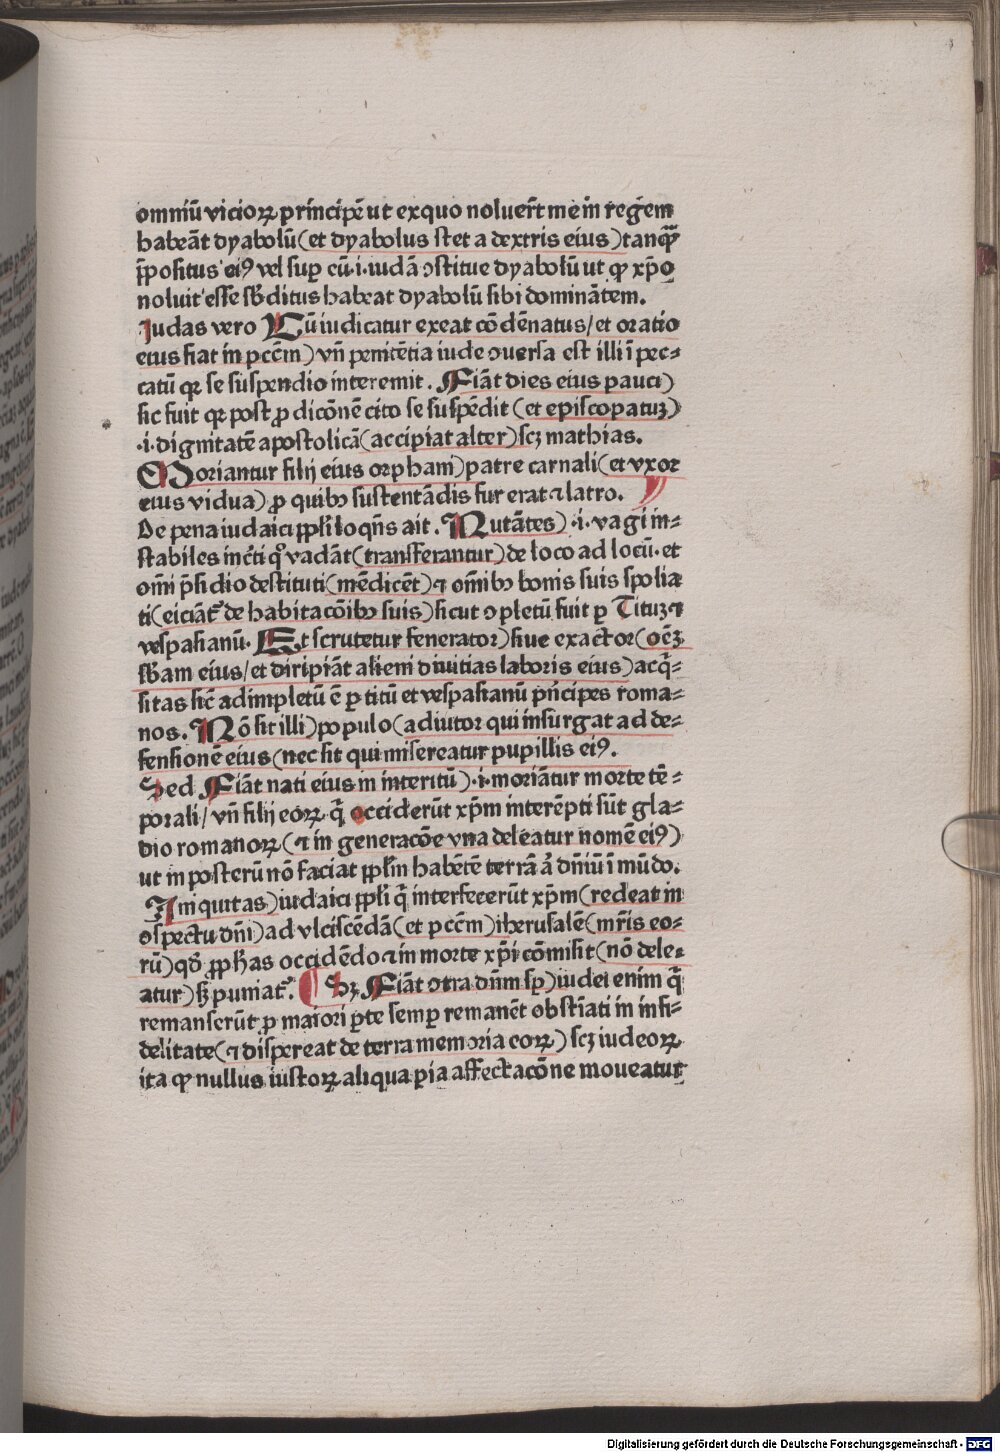 omniū vicioꝝ principē ut exquo noluer̄t me in regem
habeāt dyabolū (et dyabolus stet a dextris eius) tanqꝫ̄
p̄positus eiꝰ vel suꝑ eū .i. iudā ↄstitue dyabolū ut ꝙ xp̄o
noluit esse sb̄ditus habeat dyabolū sibi dominātem.
Iudas vero Cū iudicatur exeat cōdēnatus / et oratio
eius fiat in pctm̄) vn̄ penitētia iude ↄuersa est illi ī pec⸗
catū qꝛ se suspendio interemit. Fiāt dies eius pauci)
sic fuit qꝛ post ꝓdicōnē cito se suspēdit (et episcopatuꝫ)
.i. dignitatē apostolicā (accipiat alter) scꝫ mathias.
Moriantur filij eius orphani) patre carnali (et vxor
eius vidua) ꝓ quibꝫ sustentādis fur erat ⁊ latro.
De pena iudaici ppl̄i loqn̄s ait. Nutātes) .i. vagi in⸗
stabiles incti qͦ vadāt (transferantur) de loco ad locū. et
omī p̄sidio destituti (mēdicēt) ⁊ om̄ibꝫ bonis suis spolia
ti (eiciāt᷑ de habitacōibꝫ suis) sicut ↄpletū fuit ꝑ Tituꝫ ⁊
vespasianū. Et scrutetur fenerator) siue exactor (oēꝫ
sb̄am eius / et diripiāt alieni diuitias laboris eius) acq̄⸗
sitas sic̄ adimpletū ē ꝑ titū et vespasianū pn̄cipes roma⸗
nos. Nō sit illi) populo (adiutor qui insurgat ad de⸗
fensionē eius (nec sit qui misereatur pupillis eiꝰ.
Sed Fiāt nati eius in interitū) .i. moriātur morte tē⸗
porali / vn̄ filij eoꝝ q̄ occiderūt xp̄m interēpti sūt gla⸗
dio romanoꝝ (⁊ in generacōe vna deleatur nomē eiꝰ)
ut in posterū nō faciat ppl̄m habētē terrā ⁊ dn̄iū ī mūdo.
Iniquitas) iudaici ppl̄i q̄ interfecerūt xp̄m (redeat in
ↄspectu dn̄i) ad vlciscēdā (et pctm̄) iherusalē (mr̄is eo⸗
rū) qd̄ ꝓph̄as occidēdo ⁊ in morte xp̄i cōmisit (nō dele⸗
atur) sꝫ puniat᷑. Sꝫ Fiāt ↄtra dn̄m sꝑ) iudei enim q̄
remanserūt ꝓ maiori ꝑte semꝑ remanēt obstīati in infi⸗
delitate (⁊ dispereat de terra memoria eoꝝ) scꝫ iudeoꝝ
ita ꝙ nullus iustoꝝ aliqua pia affectacōne moueatur
Digitalisierung gefördert durch die Deutsche Forschungsgemeinschaft - DFG